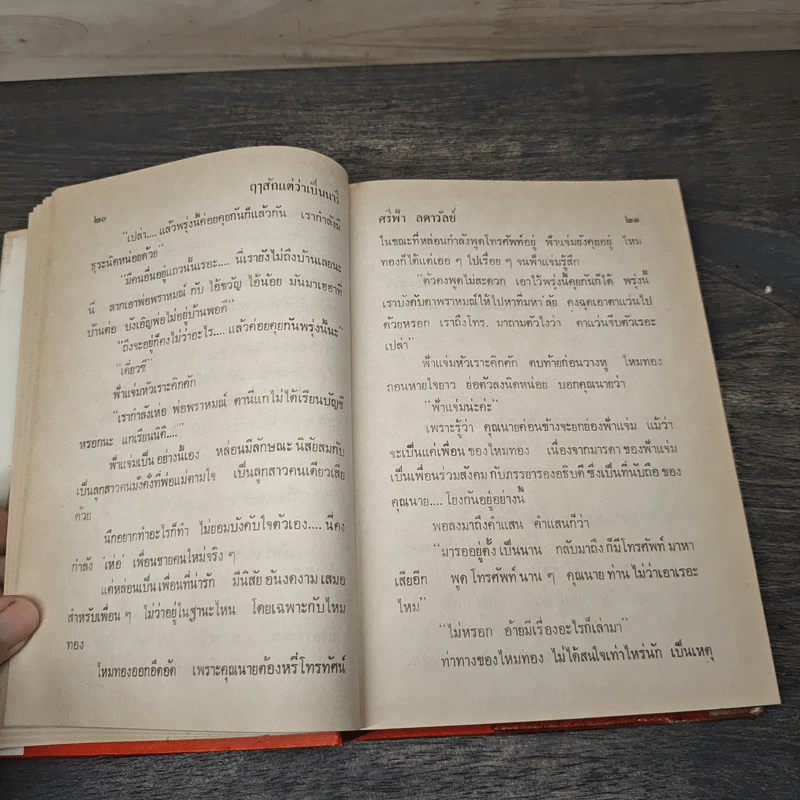 ๒๐
ฤๅสักแต่ว่าเป็นนาที
"เปล่า.... แล้วพรุ่งนี้ค่อยคุยกันก็แล้วกัน เรากำลังมี
ธุระนิดหน่อยด้วย"
"มีคนอื่นอยู่แถวนั้นเรอะ.... นี่เรายังไม่ถึงบ้านเลยนะ
นี่ ลากเอาพ่อพราหมณ์ กับ ไอ้ขวัญ ไอ้น้อย มันมาเฮฮาที่
บ้านต่อ บังเอิญพ่อไม่อยู่บ้านพอดี"
"ถึงจะอยู่ก็คงไม่ว่าอะไร.... แล้วค่อยคุยกันพรุ่งนี้นะ"
"เดี๋ยวซี"
ฟ้าแจ่มหัวเราะคิกคัก
"เรากำลังเห่อ พ่อพราหมณ์ ตานี่แกไม่ได้เรียนบัญชี
หรอกนะ แกเรียนนิติ...."
ฟ้าแจ่มเป็น อย่างนี้เอง หล่อนมีลักษณะ นิสัยสมกับ
เป็นลูกสาวคนมั่งคั่งที่พ่อแม่ตามใจ เป็นลูกสาวคนเดียวเสีย
ด้วย
นึกอยากทำอะไรก็ทำ ไม่ยอมบังคับใจตัวเอง.... นี่คง
กำลัง 'เห่อ' เพื่อนชายคนใหม่จริง ๆ
แต่หล่อนเป็น เพื่อนที่น่ารัก มีนิสัย อันงดงาม เสมอ
สำหรับเพื่อน ๆ ไม่ว่าอยู่ในฐานะไหน โดยเฉพาะกับไหม
ทอง
ไหมทองออกอึดอัด เพราะคุณนายต้องหรี่ โทรทัศน์
ศรีฟ้า ลดาวัลย์
๒๑
ในขณะที่หล่อนกำลังพูดโทรศัพท์อยู่ ฟ้าแจ่มยังคุยอยู่ ไหม
ทองก็ได้แต่เออ ๆ ไปเรื่อย ๆ จนฟ้าแจ่มรู้สึก
"ตัวคงพูดไม่สะดวก เอาไว้พรุ่งนี้คุยกันก็ได้ พรุ่งนี้
เราบังคับตาพราหมณ์ให้ไปหาที่มหา'ลัย คงฉุดเอาตาแว่นไป
ด้วยหรอก เราถึงโทร. มาถามตัวไงว่า ตาแว่นจีบตัวเรอะ
เปล่า"
ฟ้าแจ่มหัวเราะคิกคัก ตบท้ายก่อนวางหู ไหมทอง
ถอนหายใจยาว ย่อตัวลงนิดหน่อย บอกคุณนายว่า
"ฟ้าแจ่มน่ะค่ะ"
เพราะรู้ว่า คุณนายค่อนข้างจะยกย่องฟ้าแจ่ม แม้ว่า
จะเป็นแค่เพื่อน ของไหมทอง เนื่องจากมารดา ของฟ้าแจ่ม
เป็นเพื่อนร่วมสังคม กับภรรยารองอธิบดี ซึ่งเป็นที่นับถือ ของ
คุณนาย.... โยงกันอยู่อย่างนี้
พอลงมาถึงคำแสน คำแสนก็ว่า
"มารออยู่ตั้ง เป็นนาน กลับมาถึง ก็มีโทรศัพท์ มาหา
เสียอีก พูด โทรศัพท์ นาน ๆ คุณนาย ท่าน ไม่ว่าเอาเรอะ
ไหม"
"ไม่หรอก อ้ายมีเรื่องอะไรก็เล่ามา"
ท่าทางของไหมทอง ไม่ได้สนใจเท่าไหร่นัก เป็นเหตุ